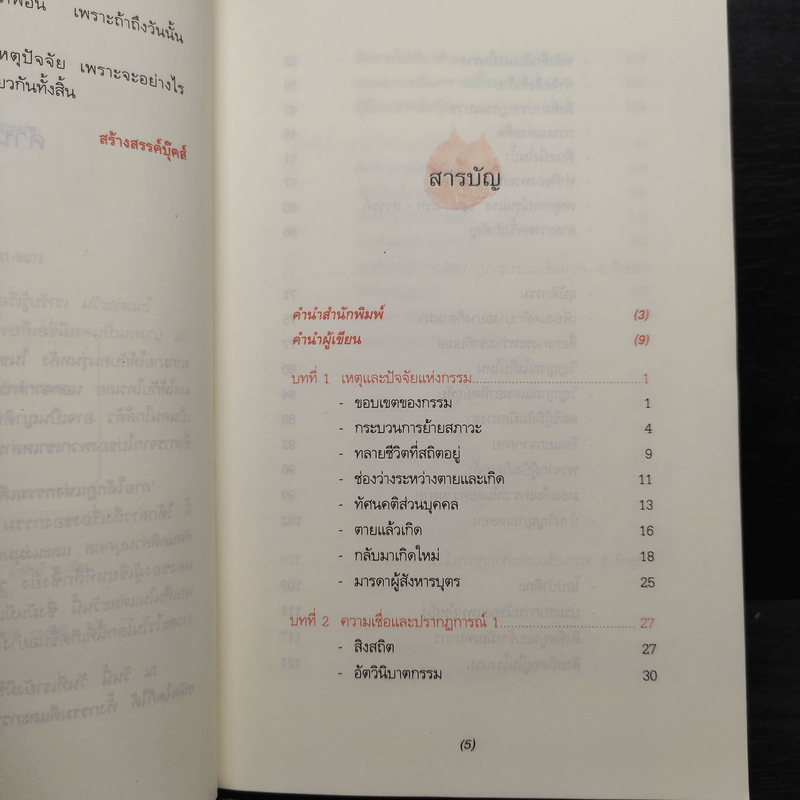 เพราะถ้าถึงวันนั้น
เหตุปัจจัย เพราะจะอย่างไร
ยวกันทั้งสิ้น
สร้างสรรค์บุ๊คส์
สารบัญ
คำนำสำนักพิมพ์ (3)
คำนำผู้เขียน (9)
บทที่ 1 เหตุและปัจจัยแห่งกรรม 1
- ขอบเขตของกรรม 1
- กระบวนการย้ายสภาวะ 4
- ทลายชีวิตที่สถิตอยู่ 9
- ช่องว่างระหว่างตายและเกิด 11
- ทัศนคติส่วนบุคคล 13
- ตายแล้วเกิด 16
- กลับมาเกิดใหม่ 18
- มารดาผู้สังหารบุตร 25
บทที่ 2 ความเชื่อและปรากฏการณ์ 1 27
- สิงสถิต 27
- อัตวินิบาตกรรม 30
(5)